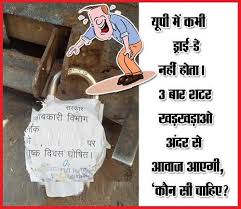 यूपी में कभी
ड्राई-डे
नहीं होता।
3 बार शटर
खड़खड़ाओ
अंदर से
आवाज आएगी,
'कौन सी चाहिए?
सरकार
बकारी विभाग
पर
ष्क दिवस घोषित।